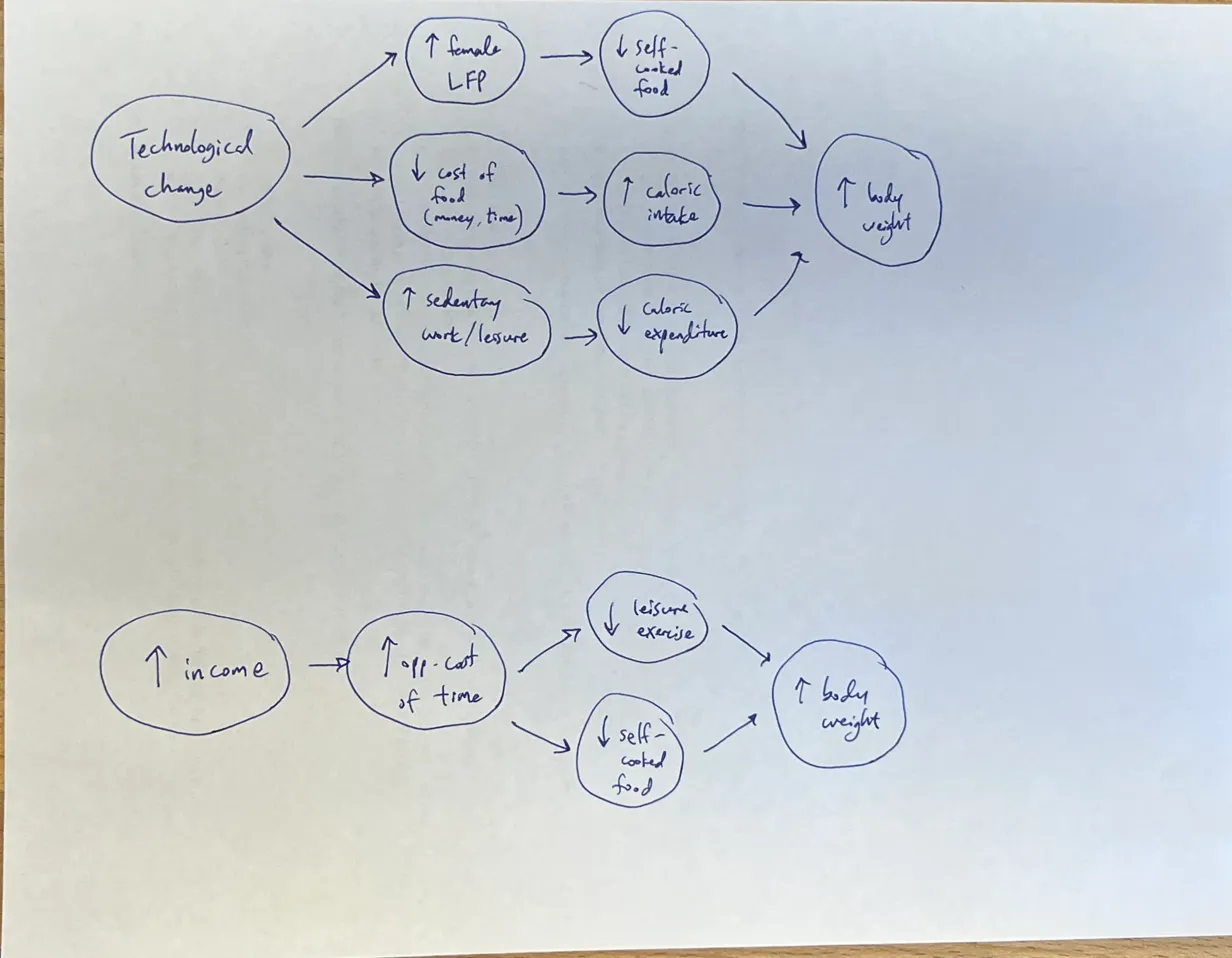 Technological
change
↑ female
LFP
↓ self-
cooked
food
↓ cost of
food
(money, time)
↑ caloric
intake
↑ sedentary
work/leisure
↓ caloric
expenditure
↑ body
weight
↑ income
↑ opp-cost
of time
↓ leisure
exercise
↓ self-
cooked
food
↑ body
weight